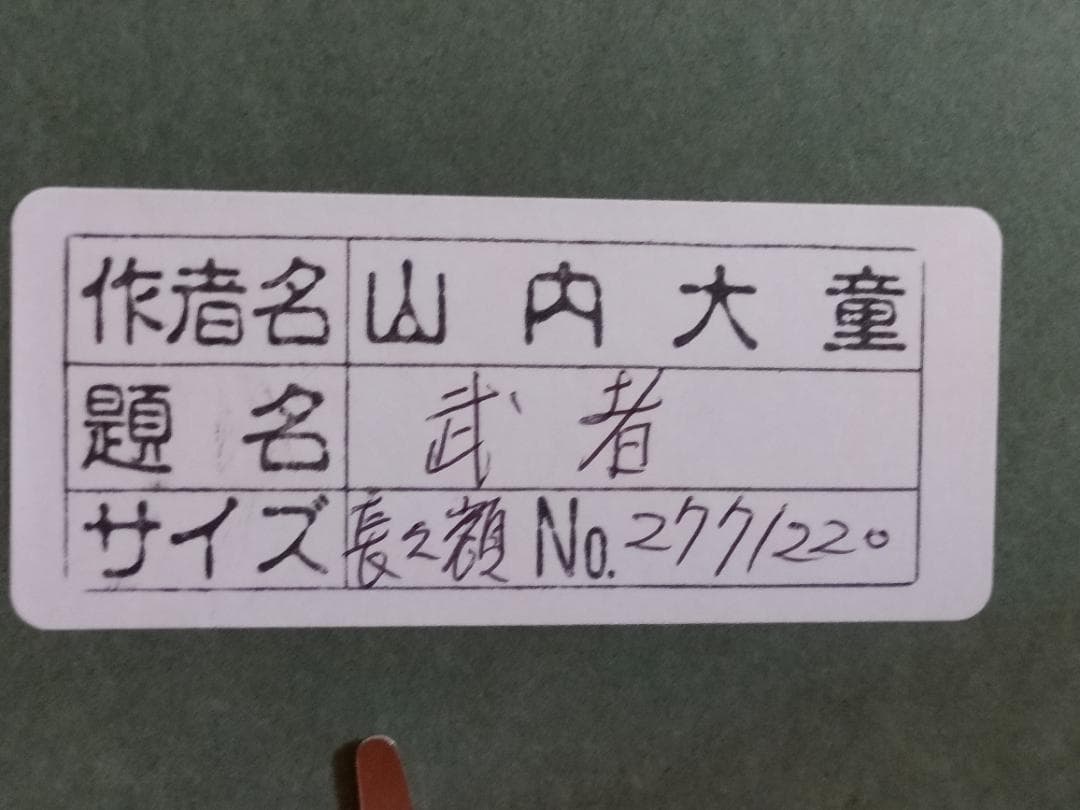 作者名 山内大童
題名 武者
サイズ 長之額 No.2771220